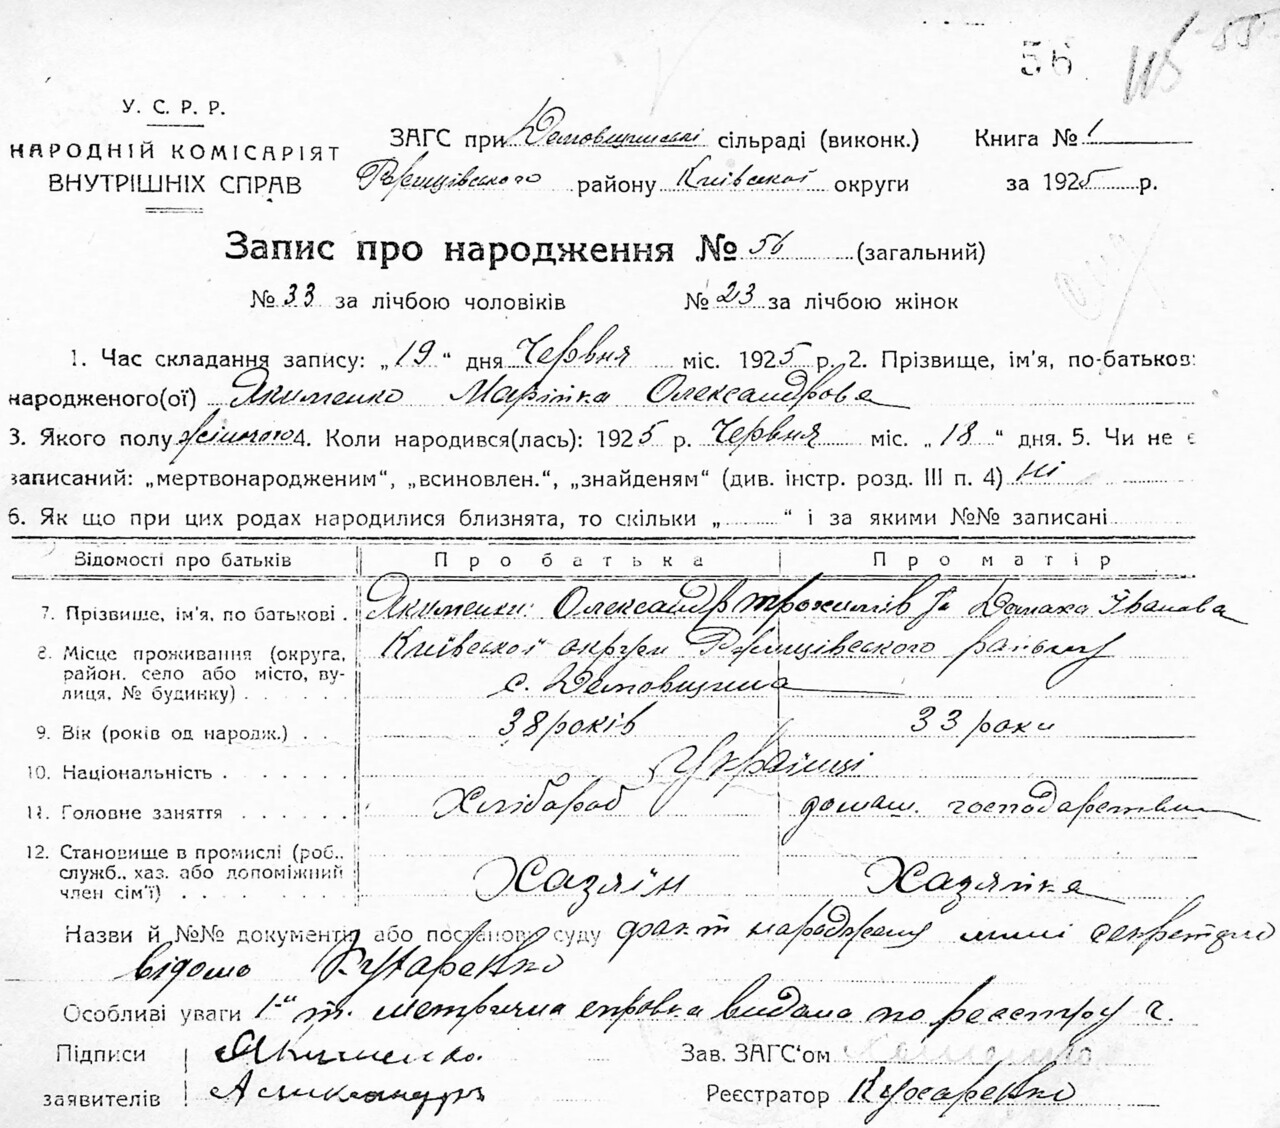 56 116 55
У. С. Р. Р.
НАРОДНІЙ КОМІСАРІЯТ
ВНУТРІШНІХ СПРАВ
ЗАГС при сільраді (виконк.) Книга № 1
Ржищівського району Київської округи за 1925 р.
Запис про народження № 56 (загальний)
№ 33 за лічбою чоловіків № 23 за лічбою жінок
1. Час складання запису: „19“ дня Червня міс. 1925 р. 2. Прізвище, ім'я, по-батьков:
народженого(ої) Якименко Марійка Олександрова
3. Якого полу жіночого 4. Коли народився(лась): 1925 р. Червня міс. „18“ дня. 5. Чи не є
записаний: „мертвонародженим“, „всиновлен.“, „знайденям“ (див. інстр. розд. III п. 4) ні
6. Як що при цих родах народилися близнята, то скільки „ “ і за якими №№ записані
Відомості про батьків Про батька Про матір
7. Прізвище, ім'я, по батькові . Якименки: Олександр Трохимів та Домаха Іванова
8. Місце проживання (округа, Київської округи Ржищівського району
район. село або місто, ву-
лиця, № будинку) . с. Демовщина
9. Вік (років од народж.) . . 38 років 33 роки
10. Національність . Українці
11. Головне заняття . Хлібороб домаш. господарством
12. Становище в промислі (роб..
служб.. хаз. або допоміжний Хазяїн Хазяйка
член сім'ї) .
Назви й №№ документів або постанови суду факт народженя мині секретарю
відомо Кухаренко
Особливі уваги 1 метрична справка видана по реєстру ч.
Підписи Якименко. Зав. ЗАГС'ом
заявителів Реєстратор Кухаренко